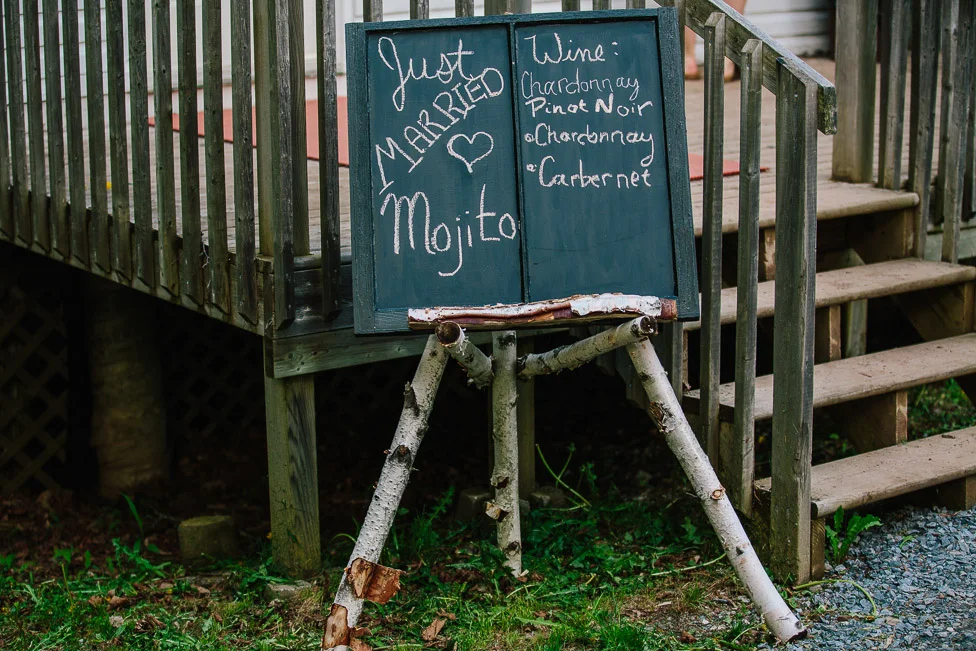 Just
MARRIED
Mojito
Wine:
Chardonnay
Pinot Noir
Chardonnay
Carbernet